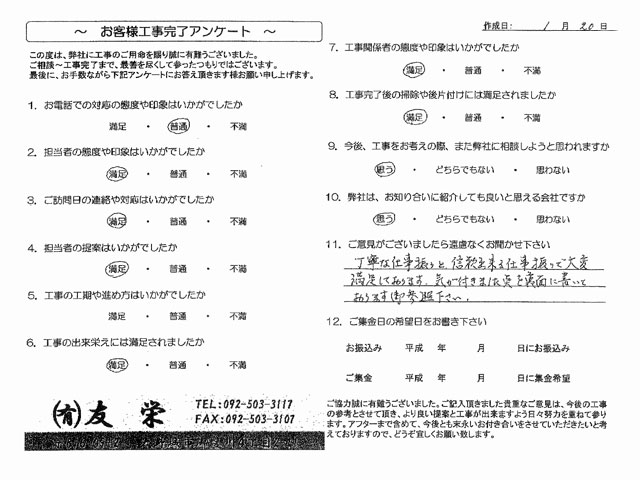 ～ お客様工事完了アンケート ～
この度は、弊社に工事のご用命を賜り誠に有難うございました。
ご相談～工事完了まで、最善を尽くして参ったつもりではございます。
最後に、お手数ながら下記アンケートにお答え頂きます様お願い申し上げます。
1. お電話での対応の態度や印象はいかがでしたか
満足 ・ 普通 ・ 不満
2. 担当者の態度や印象はいかがでしたか
満足 ・ 普通 ・ 不満
3. ご訪問日の連絡や対応はいかがでしたか
満足 ・ 普通 ・ 不満
4. 担当者の提案はいかがでしたか
満足 ・ 普通 ・ 不満
5. 工事の工期や進め方はいかがでしたか
満足 ・ 普通 ・ 不満
6. 工事の出来栄えには満足されましたか
満足 ・ 普通 ・ 不満
(有) 友 栄
TEL:092-503-3117
FAX:092-503-3107
作成日: 1 月 20 日
7. 工事関係者の態度や印象はいかがでしたか
満足 ・ 普通 ・ 不満
8. 工事完了後の掃除や後片付けには満足されましたか
満足 ・ 普通 ・ 不満
9. 今後、工事をお考えの際、また弊社に相談しようと思われますか
思う ・ どちらでもない ・ 思わない
10. 弊社は、お知り合いに紹介しても良いと思える会社ですか
思う ・ どちらでもない ・ 思わない
11. ご意見がございましたら遠慮なくお聞かせ下さい
丁寧な仕事振りと、信頼出来る仕事振りで大変
満足しております。気が付きました点を裏面に書いて
おります御参照下さい。
12. ご集金日の希望日をお書き下さい
お振込み 平成 年 月 日にお振込み
ご集金 平成 年 月 日に集金希望
ご協力誠に有難うございました。ご記入頂きました貴重なご意見は、今後の工事
の参考とさせて頂き、より良い提案と工事が出来ますよう日々努力を重ねて参り
ます。アフターまで含めて、今後とも末永いお付き合いをさせていただきたいと考
えておりますので、どうぞ宜しくお願い致します。